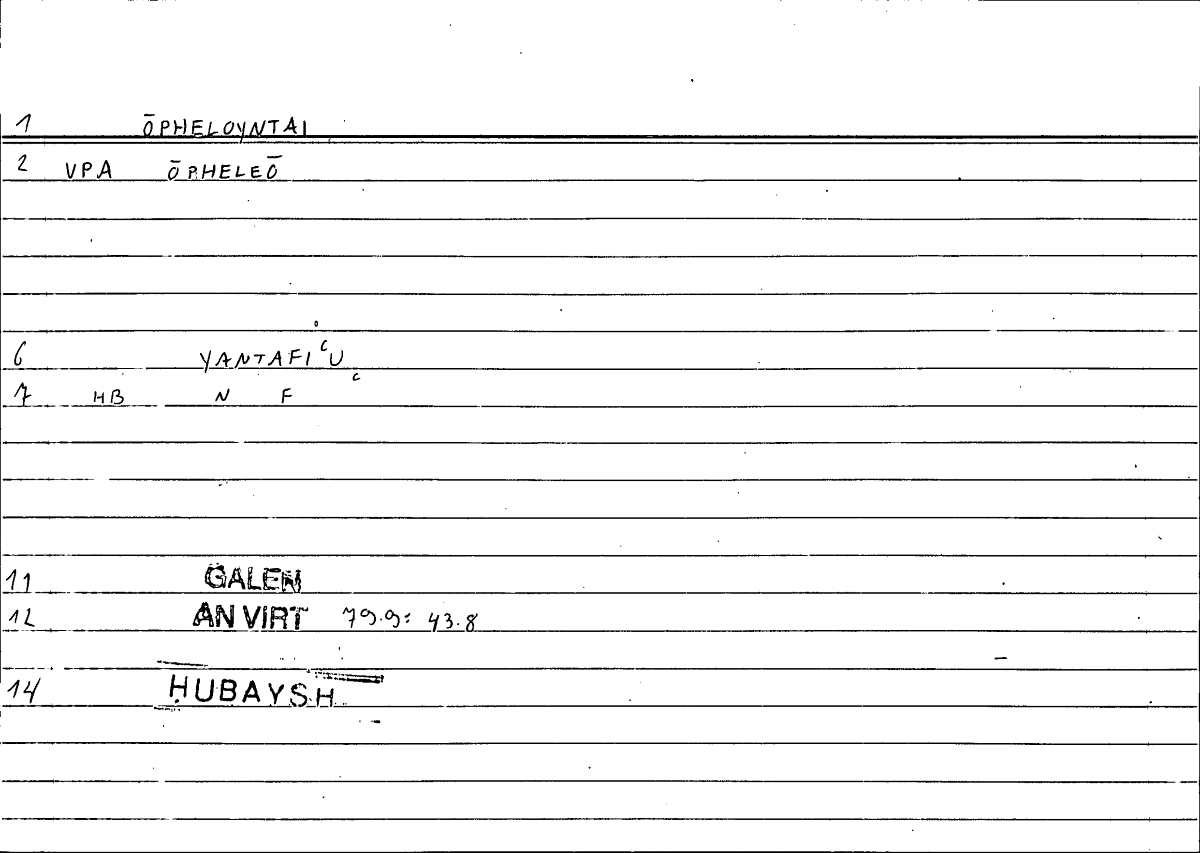 1 ŌPHELOYNTAI
2 VPA ŌPHELEŌ
6 YANTAFIʿU
7 HB N F ʿ
11 GALEN
12 AN VIRT 79.9: 43.8
14 ḤUBAYSH